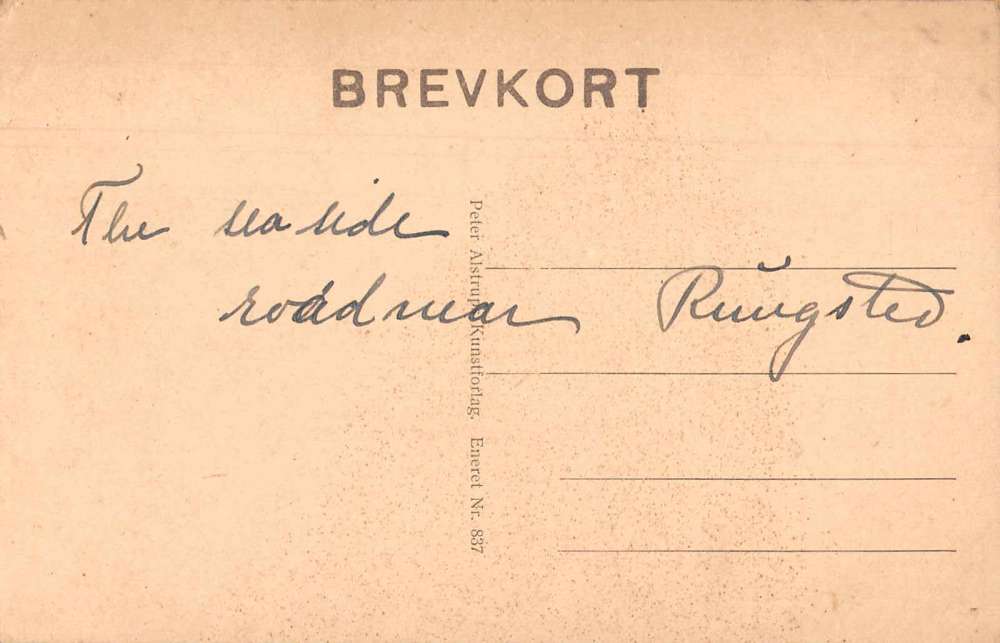 BREVKORT
The sea side
road near Rungsted.
Peter Alstrups Kunstforlag. Eneret Nr. 837